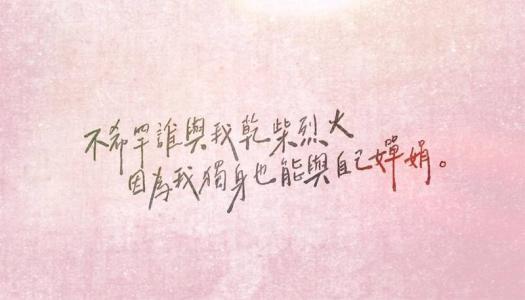 不希罕誰與我乾柴烈火
因為我獨身也能與自己嬋娟。